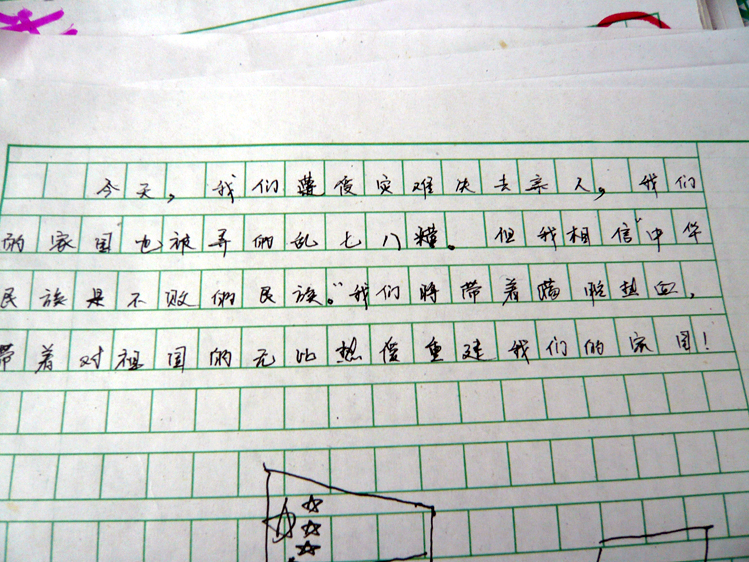 今天，我们遭受灾难决去亲人，我们
的“家国”也被弄的乱七八糟。但我相信“中华
民族是不败的民族。”我们将带着满腔热血，
带着对祖国的无比热爱重建我们的家国！